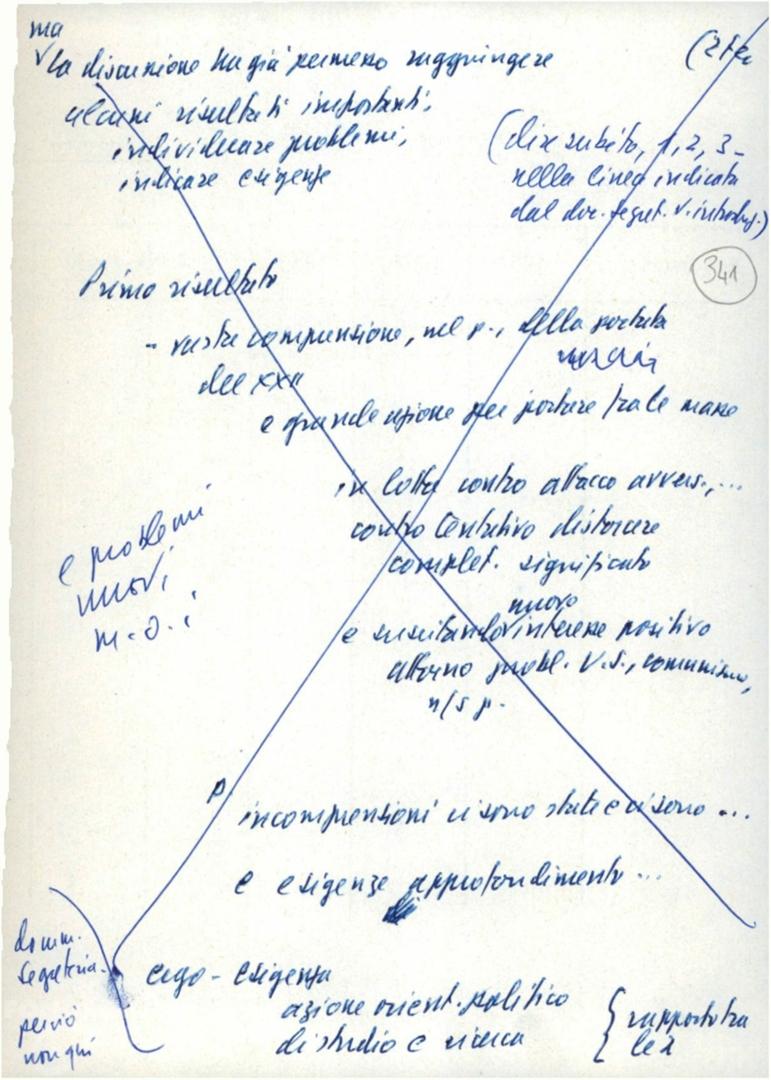 ma
La discussione ha già permesso raggiungere
alcuni risultati importanti,
individuare problemi,
indicare esigenze
(dire subito, 1, 2, 3 –
nella linea indicata
dal doc. segret. v. introduz.)
341
Primo risultato
- vasta comprensione, nel p., della portata
del XXII
e grande azione per portare tra le masse
in lotta contro attacco avvers., ...
contro tentativo distorcere
complet. significato
e problemi
nuovi
m.o.i
nuovo
e suscitando interesse positivo
attorno probl. U.S., comunismo,
n/s p.
P.
incomprensioni vi sono state e vi sono ...
e esigenze approfondimento ...
docum.
Segreteria
perciò
non qui
ergo - esigenza
azione orient. politico
di studio e ricerca
{ rapporto tra
le 2